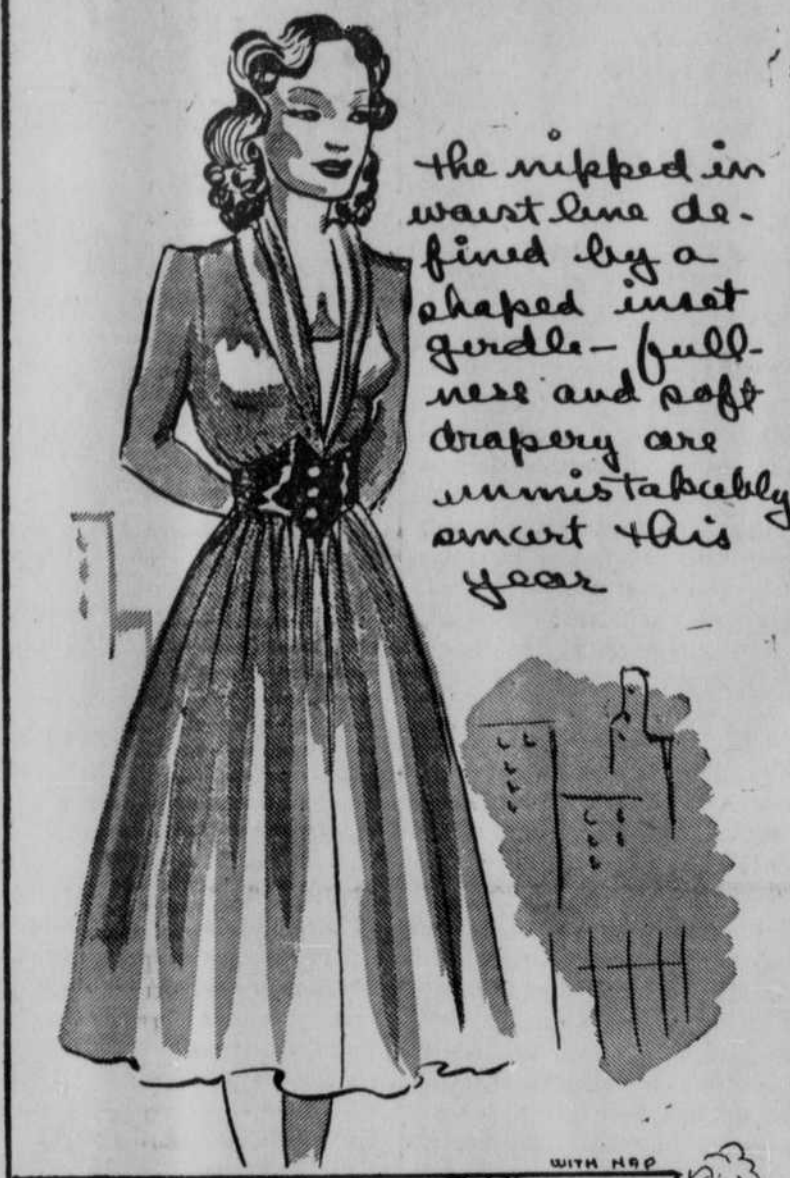 the nipped in
waist line de-
fined by a
shaped inset
girdle - full-
ness and soft
drapery are
unmistakably
smart this
year
WITH NAP